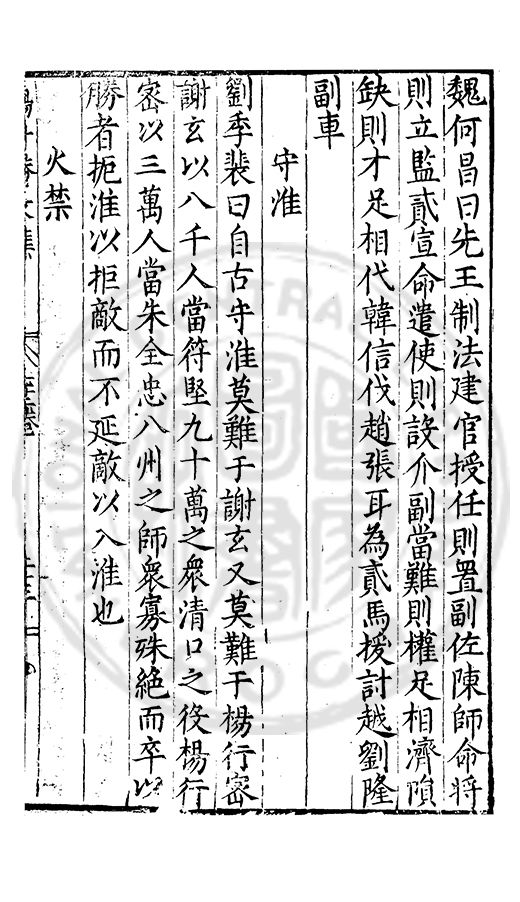 魏何昌曰先王制法建官授任則置副佐陳師命將
則立監貳宣命遣使則設介副當難則權足相濟隕
缺則才足相代韓信伐趙張耳為貳馬援討越劉隆
副車
守淮
劉季裴曰自古守淮莫難于謝玄又莫難于楊行密
謝玄以八千人當符堅九十萬之衆清口之役楊行
密以三萬人當朱全忠八州之師衆寡殊絶而卒以
勝者扼淮以拒敵而不延敵以入淮也
火禁